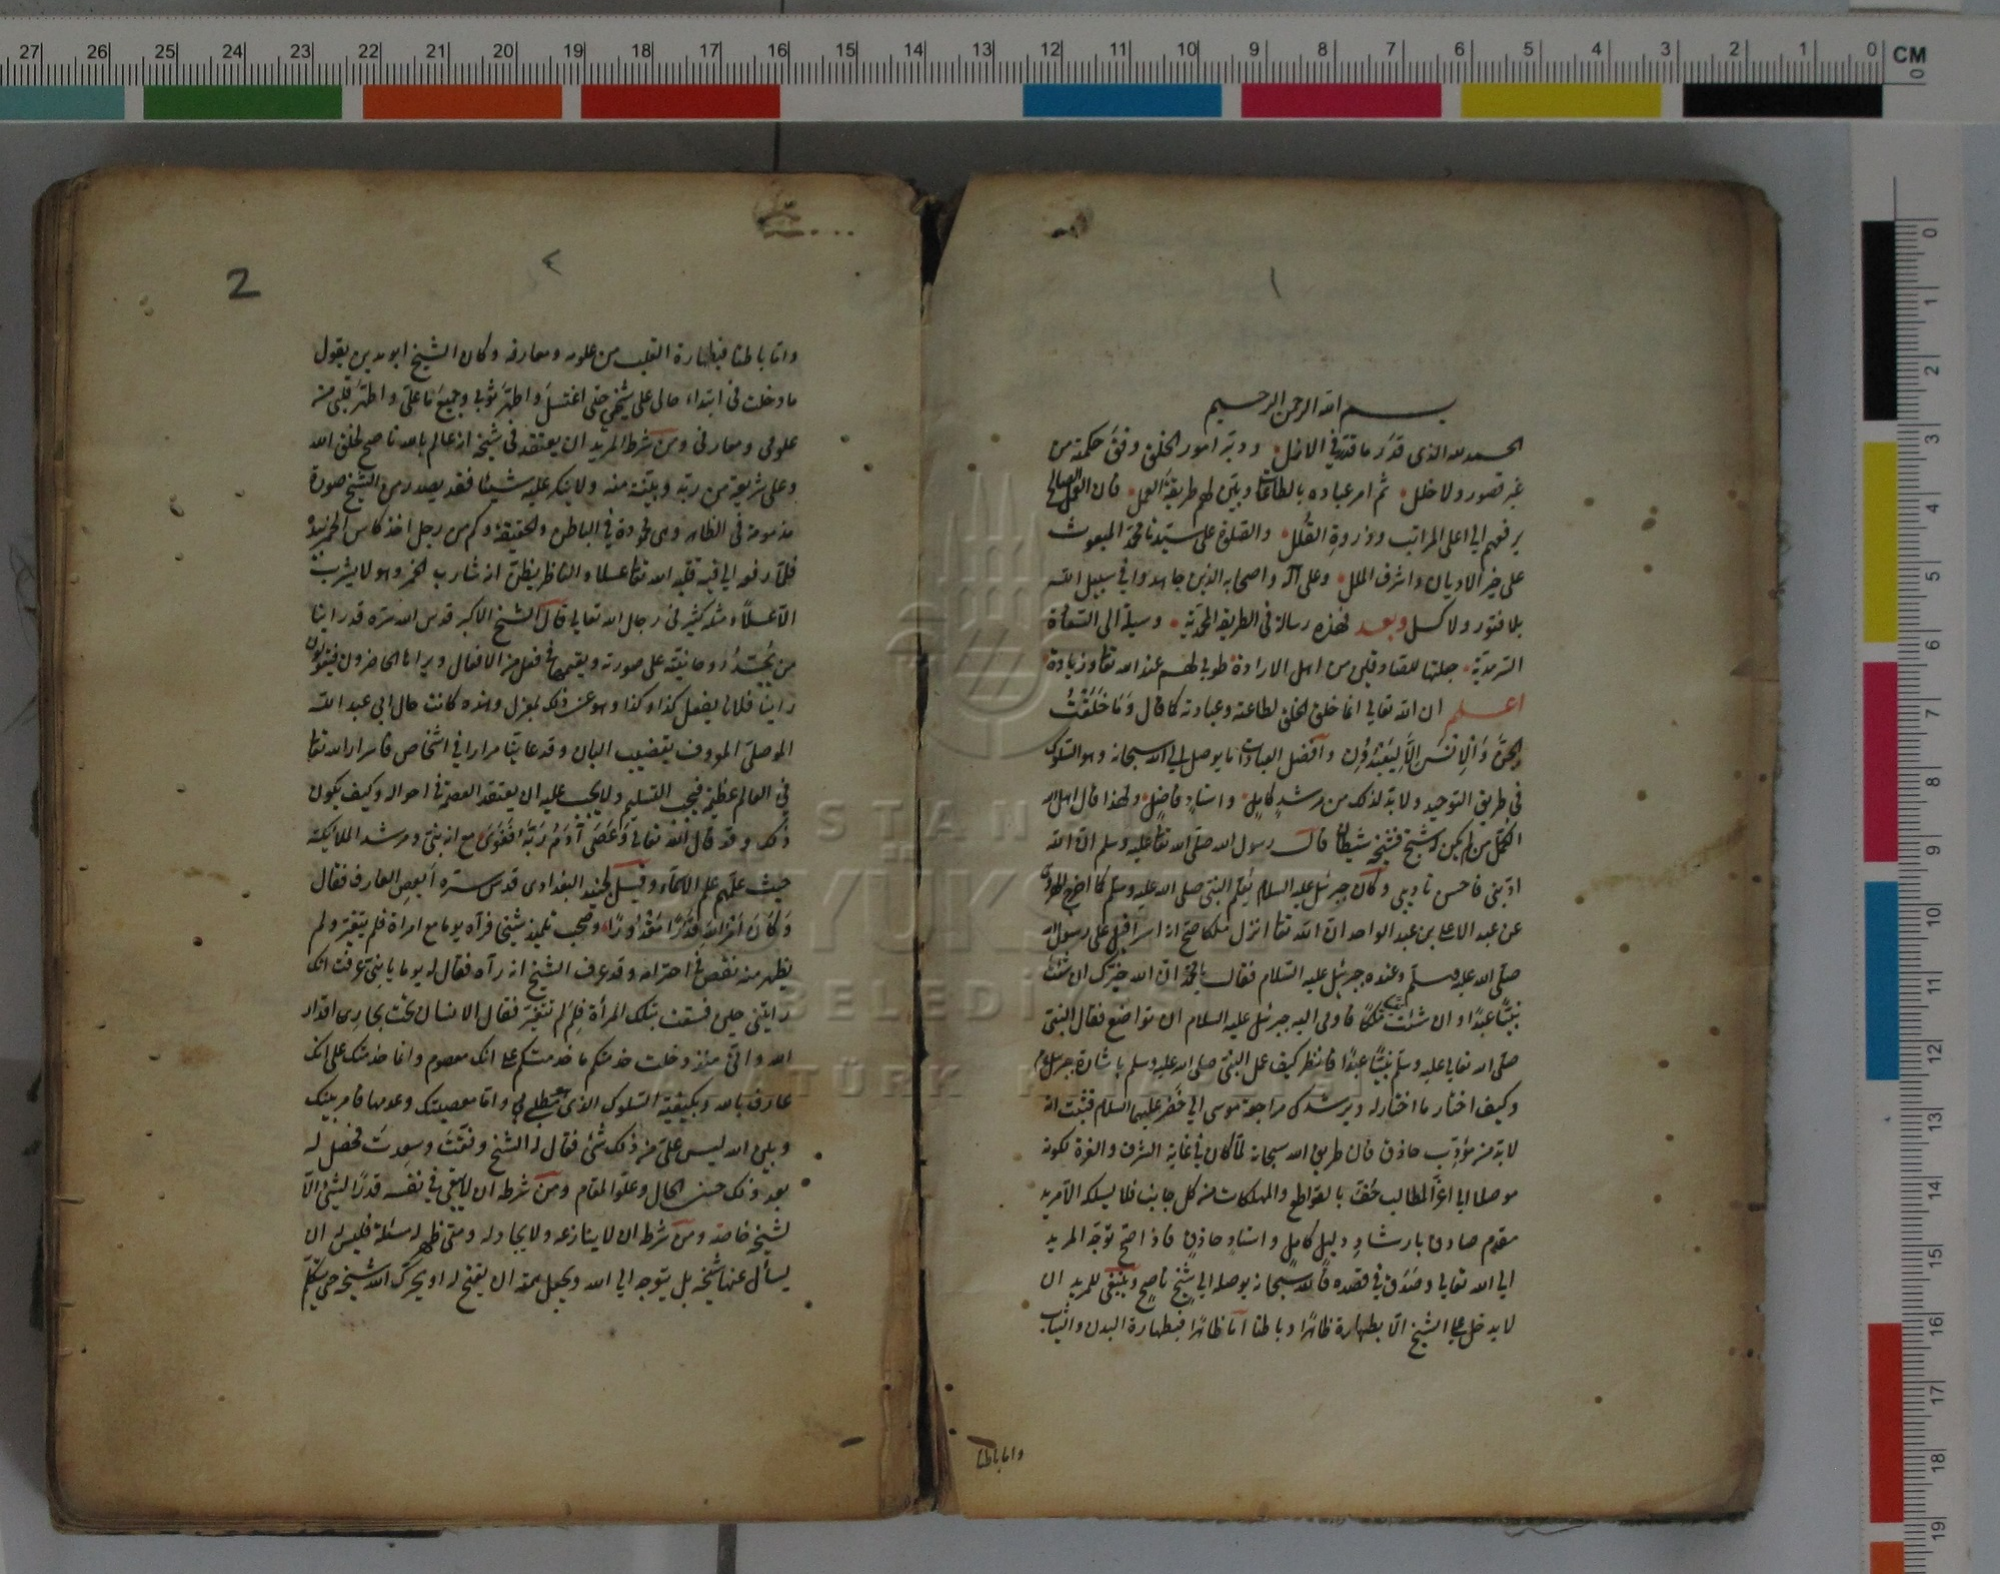 بسم الله الرحمن الرحيم
الحمد لله الذى قدّر ما قدّر فى الازل ودبّر امور الخلق وفق حكمته من
غير قصور ولا خلل ثم امر عباده بالطاعات وبيّن لهم طريقة العمل فان العمل الصالح
يرفعهم الى اعلى المراتب وذروة القلل والصلوة على سيّدنا محمّد المبعوث
على خير الاديان واشرف الملل وعلى آله واصحابه الذين جاهدوا فى سبيل الله
بلا فتور ولا كسل وبعد فهذه رسالة فى الطريقة المحمّدية وسيلة الى السعادة
السرمدية جعلتها للصادقين من اهل الارادة طوبى لهم عند الله تعا وزيادة
اعلم ان الله تعالى انما خلق الخلق لطاعته وعبادته كما قال وَمَا خَلَقْتُ
الجِنَّ وَالْاِنْسَ اِلَّا لِيَعْبُدُونِ وافضل العبادات ما يوصل الى الله سبحانه وهو السلوك
فى طريق التوحيد ولا بد لذلك من مرشد كامل واستاد فاضل ولهذا قال اهل الله
الكمّل من لم يكن له شيخ فشيخه شيطان قال رسول الله صلّى الله تعا عليه وسلم انّ الله
ادّبنى فاحسن تاديبى وكان جبرئيل عليه السلام يعلّم النبى صلى الله عليه وسلم كما اخرج
عن عبد الاعلى بن عبد الواحد انّ الله تعا انزل ملكا صح انه اسرافيل على رسول الله
صلّى الله عليه وسلّم وعنده جبرئيل عليه السلام فقال يا محمّد انّ الله خيّرك ان شئت
نبيّا عبدًا وان شئت نبيا ملكًا فاومى اليه جبرئيل عليه السلام ان تواضع فقال النبى
صلّى الله تعالى عليه وسلّم نبيّا عبدًا فانظر كيف عمل النبى صلى الله عليه وسلم باشارة جبرئيل
وكيف اختار ما اختار له ويرشدك مراجعة موسى الى خضر عليهما السلام فثبت انه
لا بد من مؤدّب حاذق فان طريق الله سبحانه لمّا كان فى غاية الشرف والعزة لكونه
موصلا الى اعزّ المطالب حُفّت بالقواطع والمهلكات من كل جانب فلا يسلكه الا مريد
مقدم صادق بارشاد دليل كامل واستاد حاذق فاذا صح توجّه المريد
الى الله تعالى وصدق فى قصده فالله سبحانه يوصله الى شيخ ناصح وينبغى للمريد ان
لا يدخل على الشيخ الّا بطهارة ظاهرًا وباطنا امّا ظاهرًا فبطهارة البدن والثياب
واما باطنا
١
٢
2
وامّا باطنا فبطهارة القلب من علومه ومعارفه وكان الشيخ ابو مدين يقول
ما دخلت فى ابتداء حالى على شيخى حتى اغتسل واطهّر ثوبى وجميع ما علىّ واطهّر قلبى من
علومى ومعارفى ومن شرط المريد ان يعتقد فى شيخه انه عالم بالله ناصح لخلق الله
وعلى شريعة من ربّه وبيّنة منه ولا ينكر عليه شيئا فقد يصدر من الشيخ صورة
مذمومة فى الظاهر وهى محمودة فى الباطن والحقيقة وكم من رجل اخذ كاس الخمر بيده
فلمّا رفعه الى فيه قلبه الله تعا عسلا والناظر يظنّ انه شارب الخمر وهو لا يشرب
الّا عسلًا ومثله كثير فى رجال الله تعالى قال الشيخ الاكبر قدّس الله سرّه قد راينا
من يُجسّد روحانيّته على صورته ويقيمها فى فعل من الافعال ويراها الحاضرون فيقولون
راينا فلانا يفعل كذا وكذا وهو عن ذلك بمعزل وهذه كانت حال ابى عبد الله
الموصلى المعروف بقضيب البان وقد عاينّا مرارا فى اشخاص فاسرار الله تعا
فى العالم عظيم فيجب التسليم ولا يجب عليه ان يعتقد العصمة فى احواله وكيف يكون
ذلك وقد قال الله تعالى وَعَصَى آدَمُ رَبَّهُ فَغَوَى مع انه نبىّ ومرشد الملائكة
حيث علّمهم علم الاسماء وقيل لجنيد البغدادى قدس سرّه أيعصى العارف فقال
وَكَانَ اَمْرُ اللهِ قَدَرًا مَقْدُورًا وصحب تلميذ شيخا فرآه يوما مع امراة فلم يتغيّر ولم
يظهر منه نقص فى احترامه وقد عرف الشيخ انه رآه فقال له يوما يا بنىّ عرفت انك
رايتنى حين فسقت بتلك المراة فلِمَ لم تتغيّر فقال الانسان تحت مجارى اقدار
الله وانّى منذ دخلت خدمتكم ما خدمتكم على انك معصوم وانما خدمتك على انك
عارف بالله وبكيفيّة السلوك الذى هو مطلبى وامّا معصيتك وعدمها فامر بينك
وبين الله ليس علىّ من ذلك شئ فقال له الشيخ وفّقت وسعدت فحصل له
بعد ذلك حسن الحال وعلوّ المقام ومن شرطه ان لا يبقى فى نفسه قدرًا لشئ الّا
لشيخه خاصة ومن شرطه ان لا ينازعه ولا يجادله ومتى ظهر له مسئلة فليس له ان
يسأل عنها شيخه بل يتوجه الى الله ويجعل همته ان يفتح له او يحرّك الله شيخه حتى يتكلّم
ISTANBUL
BÜYÜKŞEHİR
BELEDİYESİ
ATATÜRK KİTAPLIĞI
CM